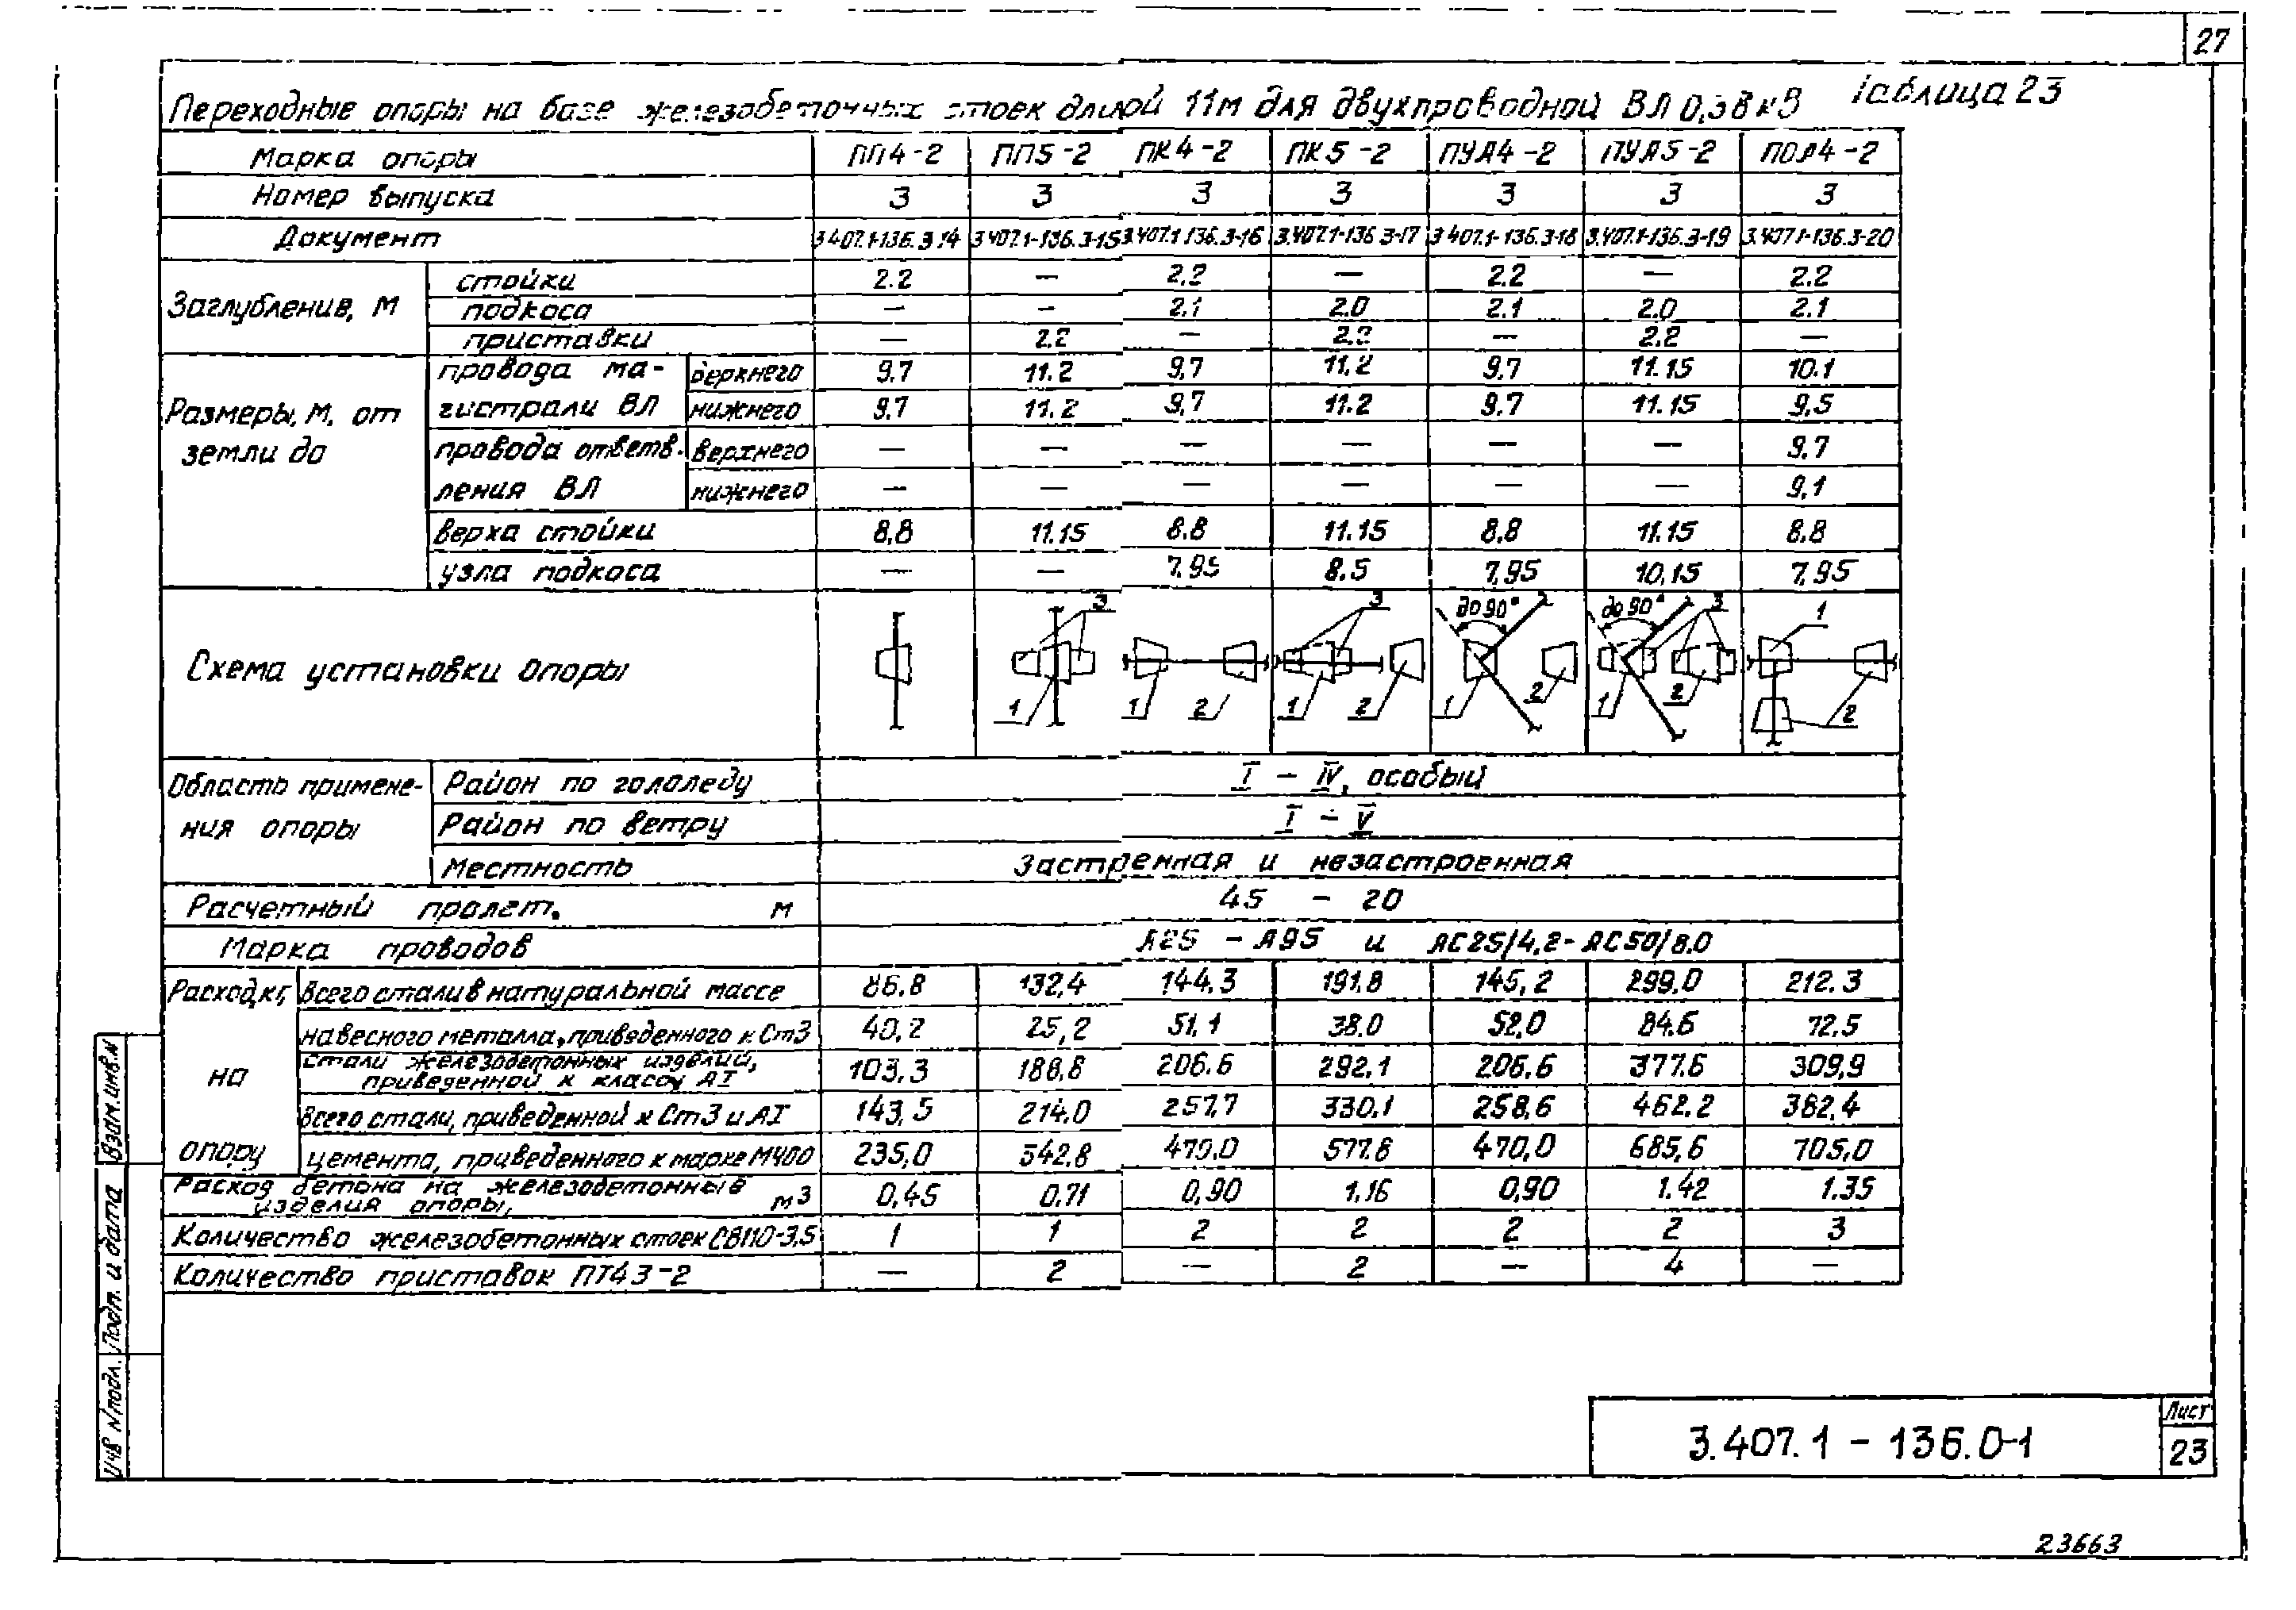 27
Таблица 23
Переходные опоры на базе железобетонных стоек длиной 11м для двухпроводной ВЛ 0,38 кВ
Марка опоры ПП4-2 ПП5-2 ПК4-2 ПК5-2 ПУА4-2 ПУА5-2 ПОА4-2
Номер выпуска 3 3 3 3 3 3 3
Документ 3.407.1-136.3.14 3.407.1-136.3-15 3.407.1.136.3-16 3.407.1-136.3-17 3.407.1-136.3-18 3.407.1-136.3-19 3.407.1-136.3-20
Заглубление, м
стойки 2.2 — 2.2 — 2.2 — 2.2
подкоса — — 2.1 2.0 2.1 2.0 2.1
приставки — 2.2 — 2.2 — 2.2 —
Размеры, м, от земли до
провода магистрали ВЛ
верхнего 9.7 11.2 9,7 11,2 9,7 11.15 10.1
нижнего 9,7 11.2 9,7 11.2 9.7 11.15 9,5
провода ответвления ВЛ
верхнего — — — — — — 9.7
нижнего — — — — — — 9,1
верха стойки 8,8 11.15 8.8 11.15 8,8 11.15 8.8
узла подкоса — — 7.95 8.5 7,95 10,15 7,95
Схема установки опоры
3 1
1 2
3 1 2
до 90° 1 2
до 90° 3 1 2
1 2
Область применения опоры
Район по гололеду I – IV, особый
Район по ветру I – V
Местность Застренная и незастроенная
Расчетный пролет, м 45 – 20
Марка проводов А25 – А95 и АС25/4,2- АС50/8.0
Расход, кг, на опору
всего стали в натуральной массе 86.8 132,4 144.3 191.8 145,2 299.0 212.3
навесного металла, приведенного к Ст3 40,2 25,2 51,1 38.0 52,0 84.6 72.5
стали железобетонных изделий, приведенной к классу АI 103,3 188,8 206.6 292.1 206.6 377.6 309,9
всего стали, приведенной к Ст3 и АI 143,5 214.0 257,7 330.1 258,6 462.2 382,4
цемента, приведенного к марке М400 235,0 342,8 470.0 577.8 470,0 685,6 705,0
Расход бетона на железобетонные изделия опоры, м3 0,45 0.71 0,90 1,16 0,90 1.42 1.35
Количество железобетонных стоек СВ110-3,5 1 1 2 2 2 2 3
Количество приставок ПТ43-2 — 2 — 2 — 4 —
Взам.инв.№
Подп. и дата
Инв №подл.
3.407.1 – 136.0-1
Лист
23
23663